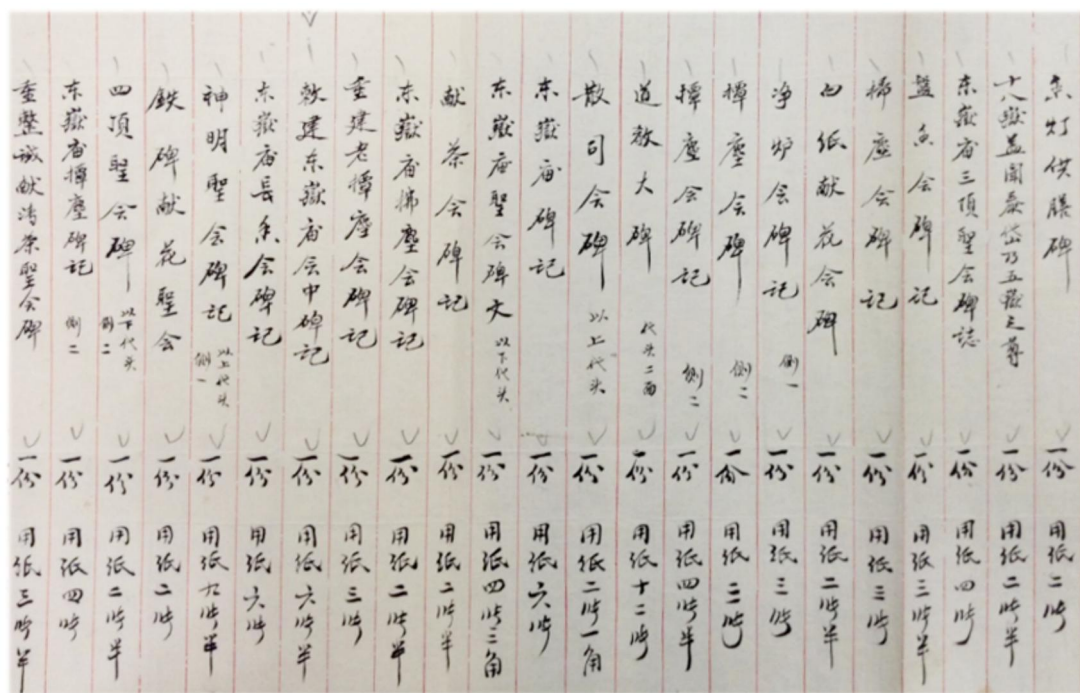 东灯供膳碑 一份 用纸二张
十八嶽盖闻泰岱乃五嶽之尊 一份 用纸二张半
东嶽庙三顶聖会碑誌 一份 用纸四张
盘香会碑记 一份 用纸三张半
掸塵会碑记 一份 用纸三张
白纸献花会碑 一份 用纸二张半
净炉会碑记 侧一 一份 用纸三张
掸塵会碑 侧二 一份 用纸三张
掸塵会碑记 侧二 一份 用纸四张半
道教大碑 代头二面 一份 用纸十二张
散司会碑 以上代头 一份 用纸二张一角
东嶽庙碑记 一份 用纸六张
东嶽庙聖会碑文 以下代头 一份 用纸四张三角
献茶会碑记 一份 用纸二张半
东嶽庙拂塵会碑记 一份 用纸二张半
重建老掸塵会碑记 一份 用纸三张
敕建东嶽庙会中碑记 一份 用纸六张半
东嶽庙長香会碑记 一份 用纸六张
神明聖会碑记 以上代头 侧一 一份 用纸九张半
鉄碑献花聖会 一份 用纸二张
四頂聖会碑 以下代头 侧二 一份 用纸二张半
东嶽庙掸塵碑记 侧二 一份 用纸四张
重整诚献清茶聖会碑 一份 用纸三张半